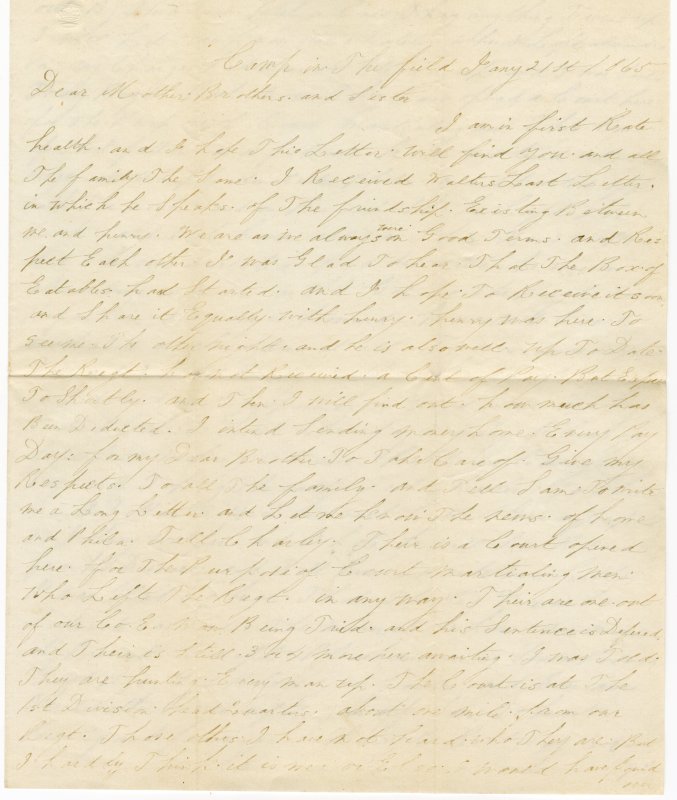 Camp in The field Jany 21st 1865
Dear Mother Brothers. and Sister
I am in first Rate
health. and I hope This Letter. Will find You. and all
The family The Same. I Received Walters Last Letter.
in which he Speaks. of The friendship. Existing Between
me. and henry. We are as we always were on Good Terms. and Res
pect Each other. I was Glad To hear. That The Box of
Eatables had Started. and I hope. To Receive it soon
and Share it Equally. With henry. henry was here. To
see me The other night. and he is also well. Up To Date.
The Regt has not Received. a Cent of Pay. But Expec
To Shortly. and Then I will find out. how much has
Been Deducted. I intend Sending money home. Every Pay
Day. for my Dear Brother. To Take Care of. Give my
Respects. To all The family. and Tell Sam To write
me a Long Letter. and Let me know The news. of home
and Phila. Tell Charley. Their is a Court opened
here. for The Purpose of Court martialing men
Who Left The Regt. in any way. Their are one out
of our Co. E. Being Tried. and his Sentence is Defered.
and Their is Still 3 of more here awaiting. I was Told.
They are hunting Every man up. The Court is at The
1st Division Head Quarters. about one mile. from our
Regt. Those others I have not heard who They are. But
I hardly Think. it is would have